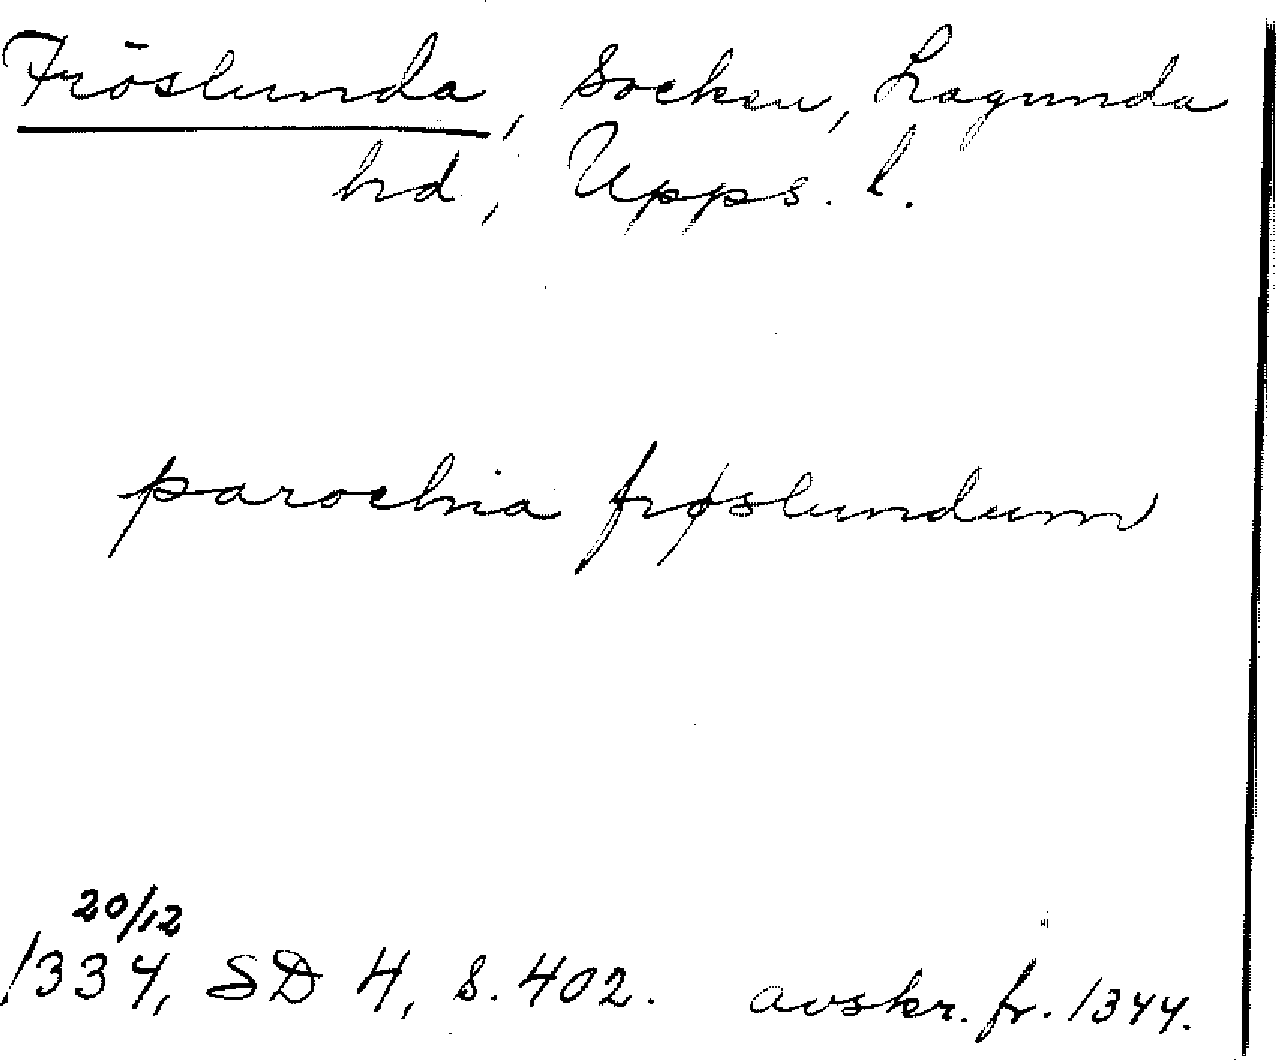 Fröslunda, Socken, Lagunda
hd, Upps. l.
parochia frøslundum
20/12
1334, SD 4, s. 402. avskr. fr. 1344.